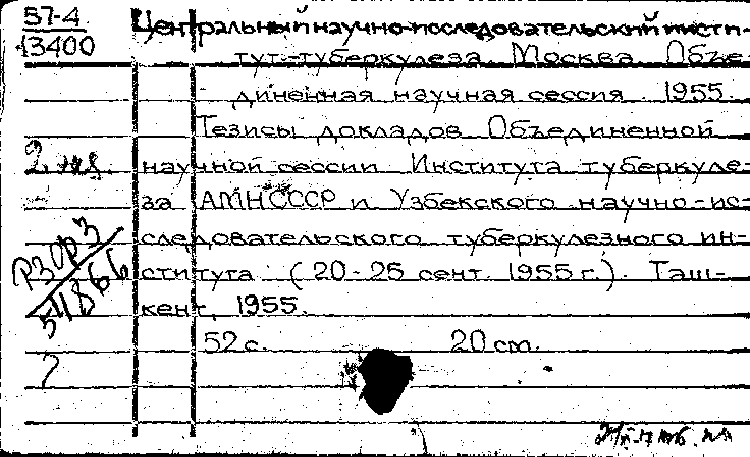 57-4
13400
Центральный научно-исследовательский инсти-
тут туберкулеза. Москва. Объе-
диненная научная сессия. 1955.
Тезисы докладов Объединенной
2 экз. научной сессии Института туберкуле-
за АМН СССР и Узбекского научно-ис-
следовательского туберкулезного ин-
ститута (20-25 сент. 1955 г.). Таш-
кент, 1955.
52 с. 20 cm.